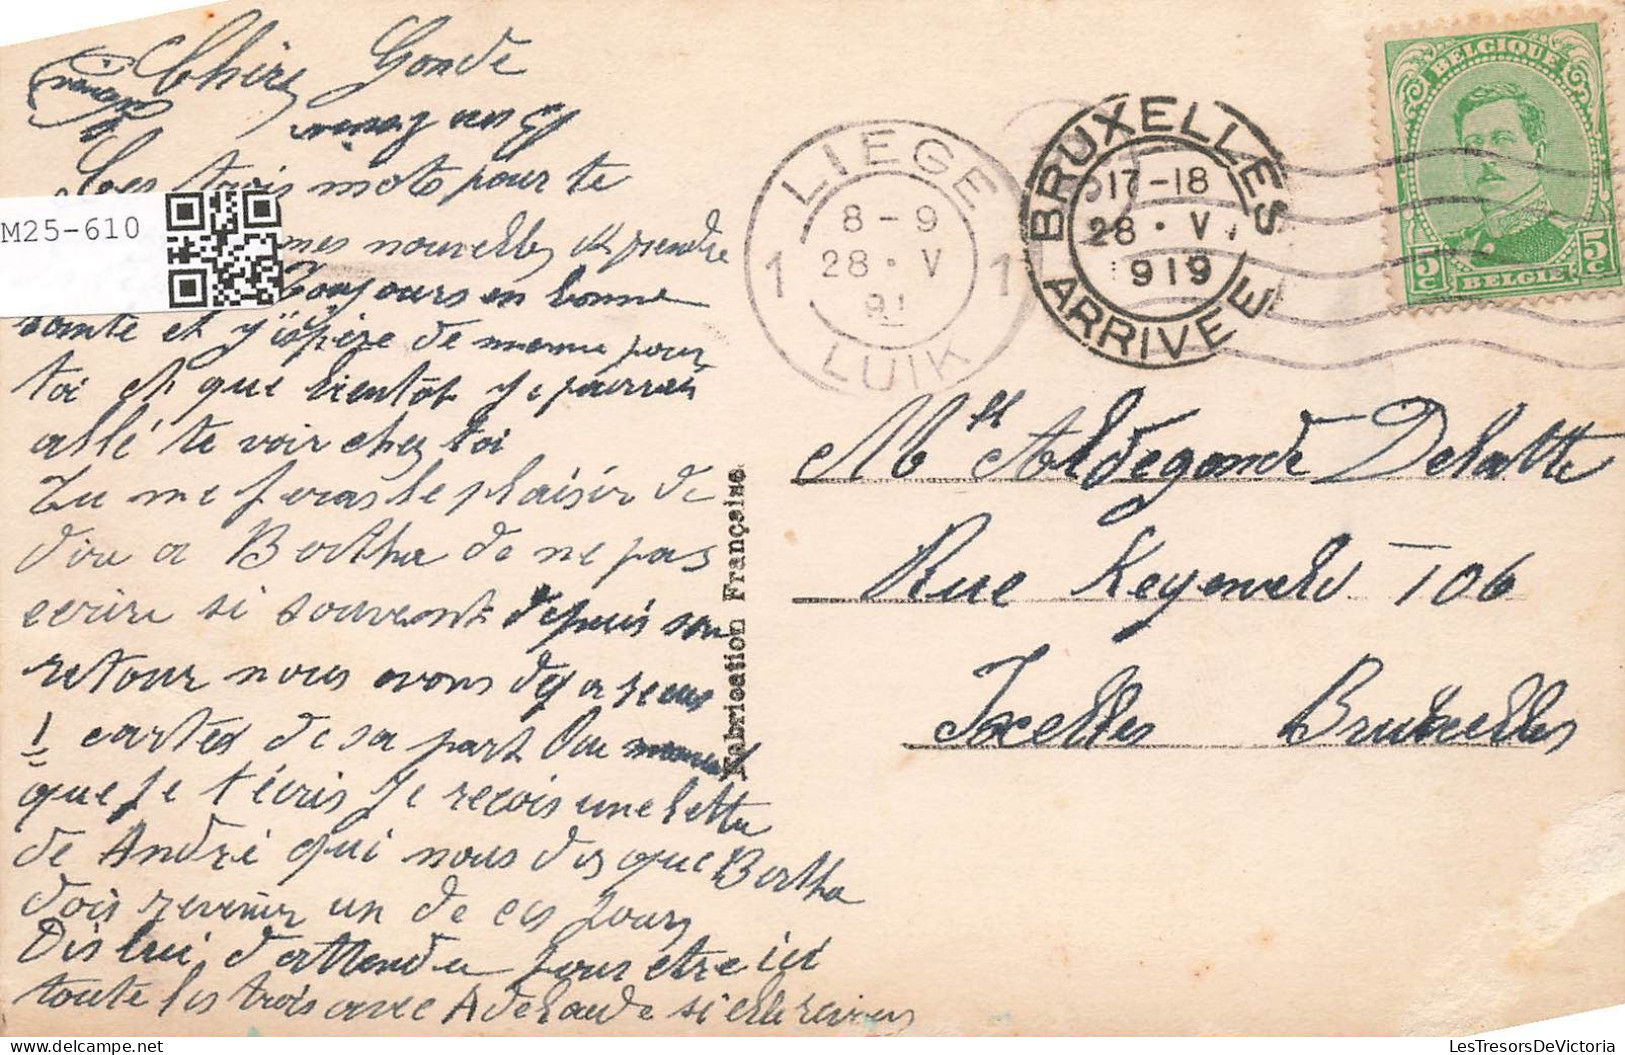 Chère Gonde
Ces trois mots pour te
M25-610
mes nouvelles et prendre
Toujours en bonne
sante et y'ispère de meme pour
toi et que bientôt je pourrais
allé te voir chez toi
Tu me feras le plaisir de
dire a Bertha de ne pas
ecrire si souvent depuis son
retour nous avons deja recus
cartes de sa part Au moment
que je t'écris je reçois une lettre
de André qui nous dis que Bertha
dois revenir un de ces jours
Dis lui d'attendre pour etre ici
toute les trois avec Adelaude si elle reviens
Fabrication Française
LIEGE
8-9
28·V
1 1
LUIK
BRUXELLES
17-18
28·V
1919
ARRIVEE
BELGIQUE
5c 5c
BELGIE
Mlle Aldegonde Delatte
Rue Keyenveld 106
Ixelles Bruxelles
LesTresorsDeVictoria